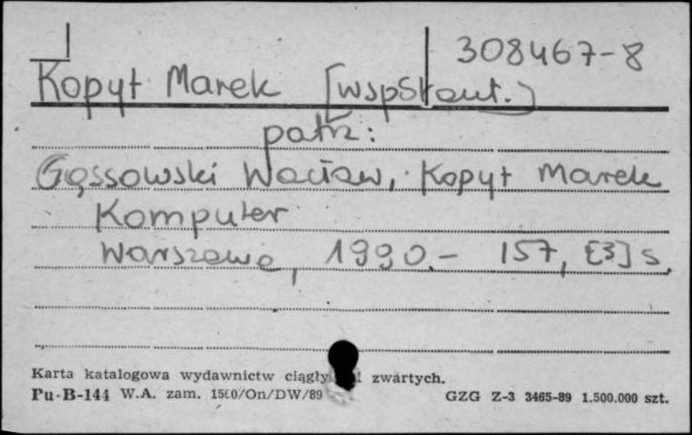 308467-8
Kopyt Marek [współaut.]
patrz:
Gąssowski Wacław, Kopyt Marek
Komputer
Warszawa, 1990.- 157, [3] s.
Karta katalogowa wydawnictw ciągły i zwartych.
Pu-B-144 W.A. zam. 1500/On/DW/89 GZG Z-3 3465-89 1.500.000 szt.